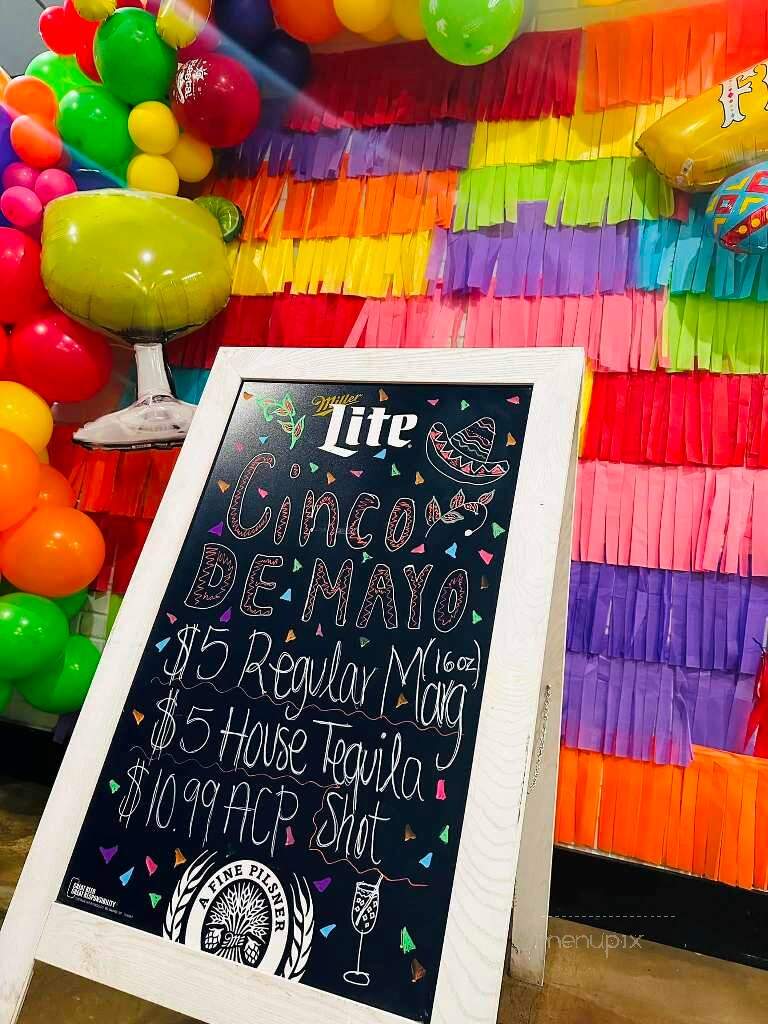 Miller
Lite
Cinco
DE MAYO
$5 Regular Marg (16oz)
$5 House Tequila
Shot
$10.99 ACP
A FINE PILSNER
GREAT BEER
GREAT RESPONSIBILITY
menupix